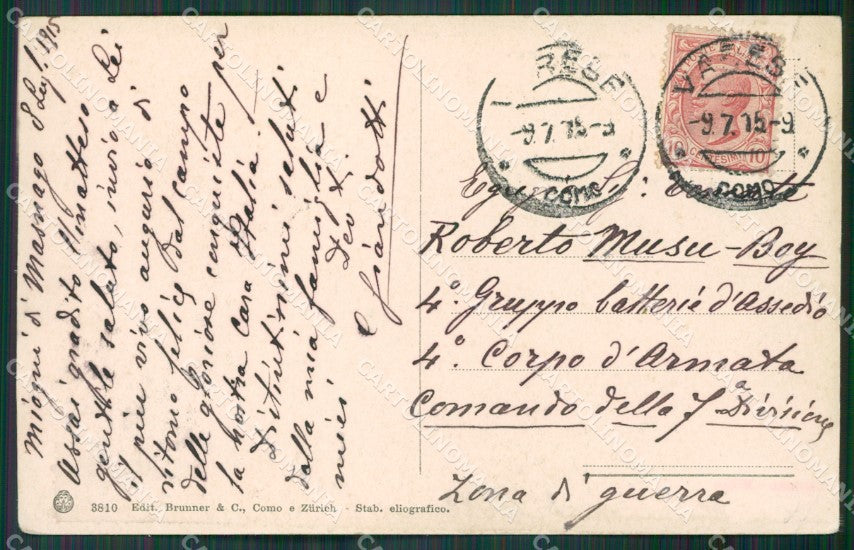 Miogni di Masnago 8 Lugl. 1915
Assai gradito l'inatteso
gentile saluto, invio a Lei
il più vivo augurio di
ritorno felice dal campo
delle gloriose conquiste per
la nostra cara Italia.
Distintissimi saluti
dalla mia famiglia e
miei Dev.
G Giandotti
VARESE
-9.7.15-9
COMO
VARESE
-9.7.15-9
COMO
10 CENTESIMI 10
Egregio Sig: Tenente
Roberto Musu-Boy
4º. Gruppo batterie d'Assedio
4º. Corpo d'Armata
Comando della 7ª Divisione
Zona di guerra
3810 Edit. Brunner & C., Como e Zürich - Stab. eliografico.
CARTOLINOMANIA